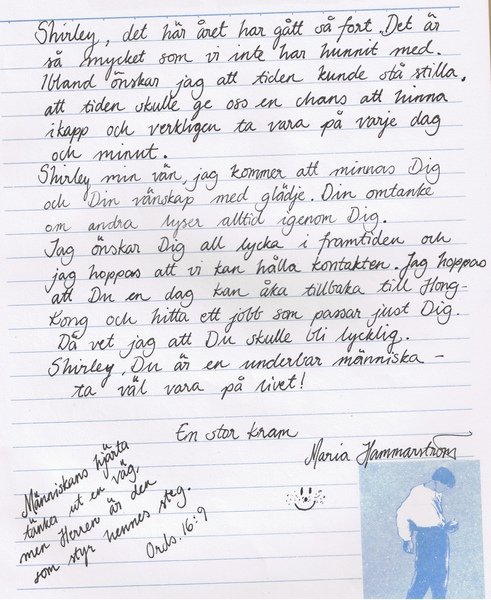 Shirley, det här året har gått så fort. Det är
så mycket som vi inte har hunnit med.
Ibland önskar jag att tiden kunde stå stilla,
att tiden skulle ge oss en chans att hinna
ikapp och verkligen ta vara på varje dag
och minut.
Shirley min vän, jag kommer att minnas Dig
och Din vänskap med glädje. Din omtanke
om andra lyser alltid igenom Dig.
Jag önskar Dig all lycka i framtiden och
jag hoppas att vi kan hålla kontakten. Jag hoppas
att Du en dag kan åka tillbaka till Hong-
Kong och hitta ett jobb som passar just Dig.
Då vet jag att Du skulle bli lycklig.
Shirley, Du är en underbar människa -
ta väl vara på livet!
En stor kram
Maria Hammarström
Människans hjärta
tänker ut en väg,
men Herren är den
som styr hennes steg.
Ords. 16:9